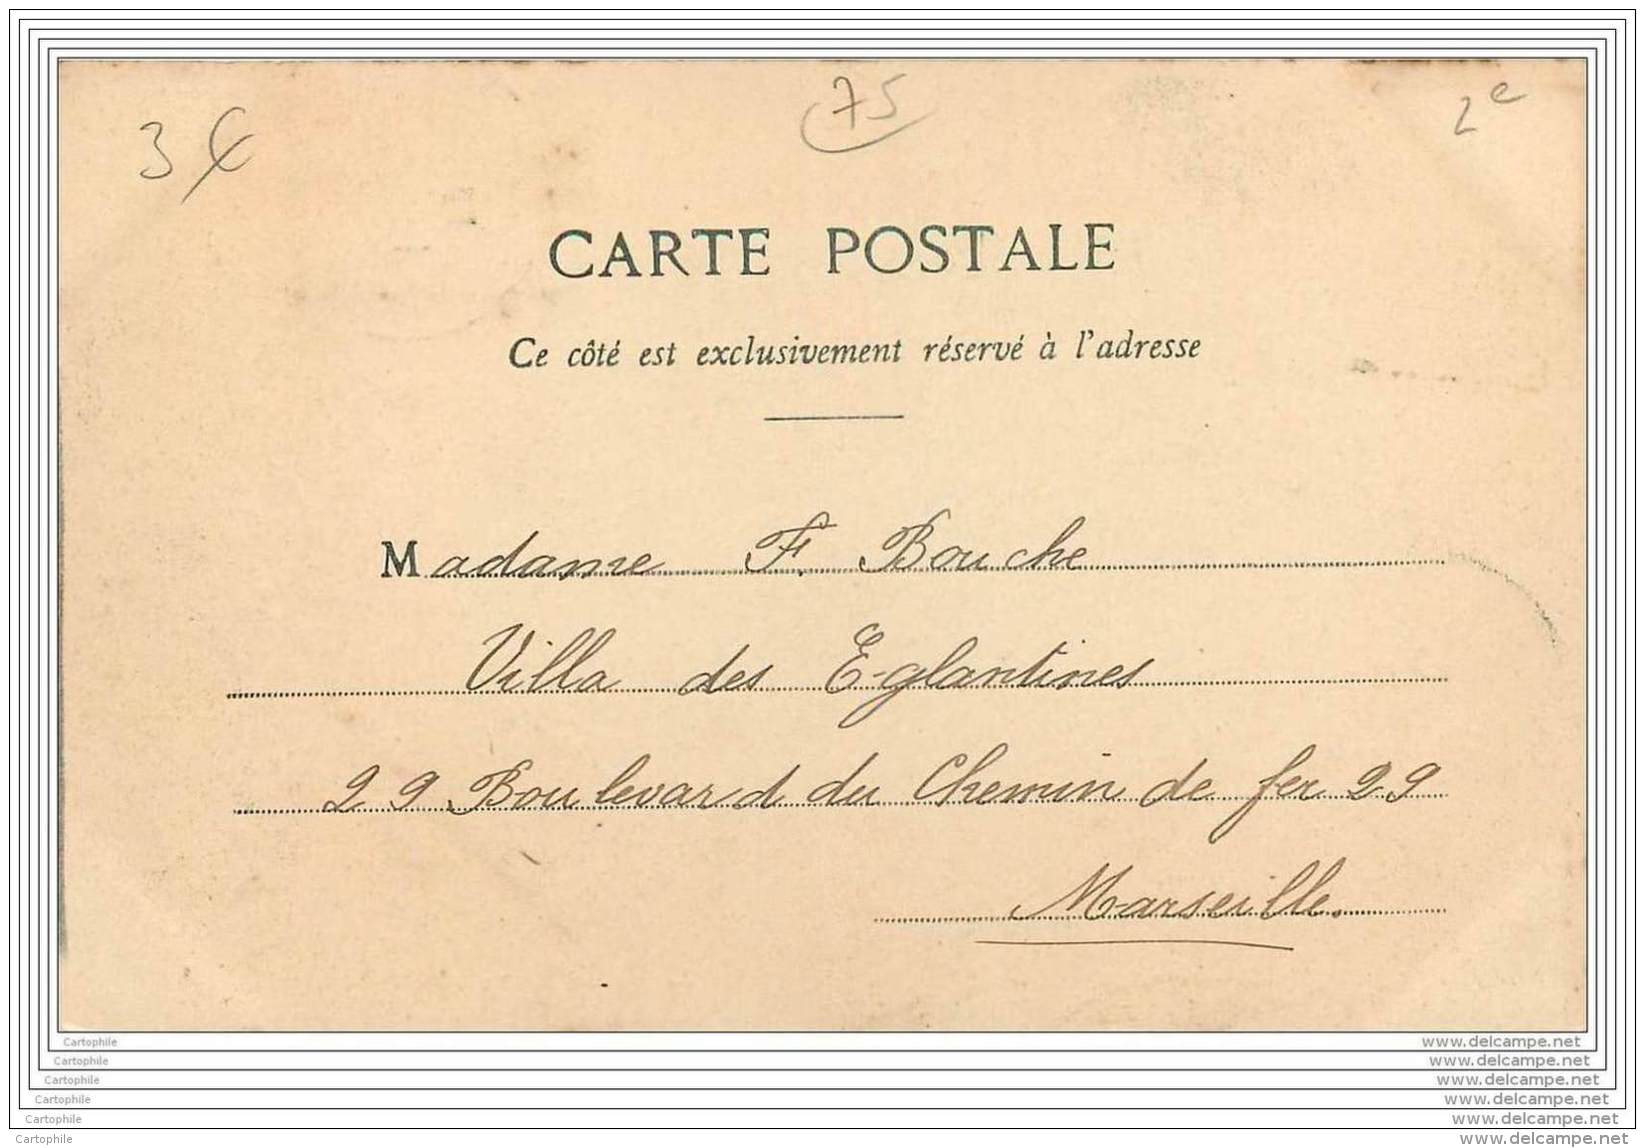 3 €
75
2e
CARTE POSTALE
Ce côté est exclusivement réservé à l'adresse
Madame F. Bouche
Villa des Eglantines
29 Boulevard du Chemin de fer 29
Marseille.
Cartophile www.delcampe.net
Cartophile www.delcampe.net
Cartophile www.delcampe.net
Cartophile www.delcampe.net
Cartophile www.delcampe.net
Cartophile www.delcampe.net